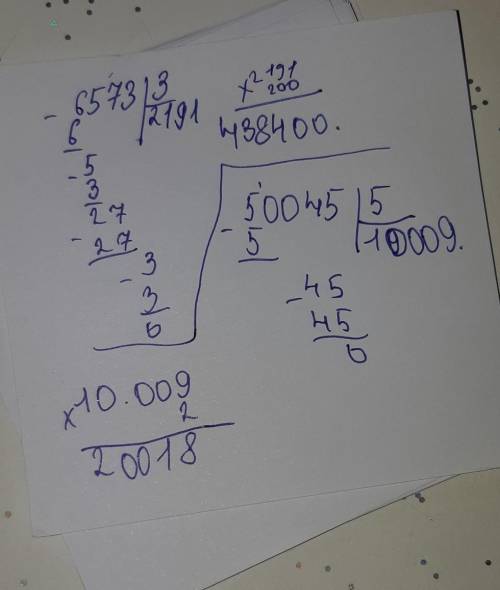 - 6573 | 3
6 2191
- 5
3
27
- 27
- 3
3
0
x 2191
200
438400.
- 50045 | 5
5 10009.
- 45
45
0
x 10.009
2
20018